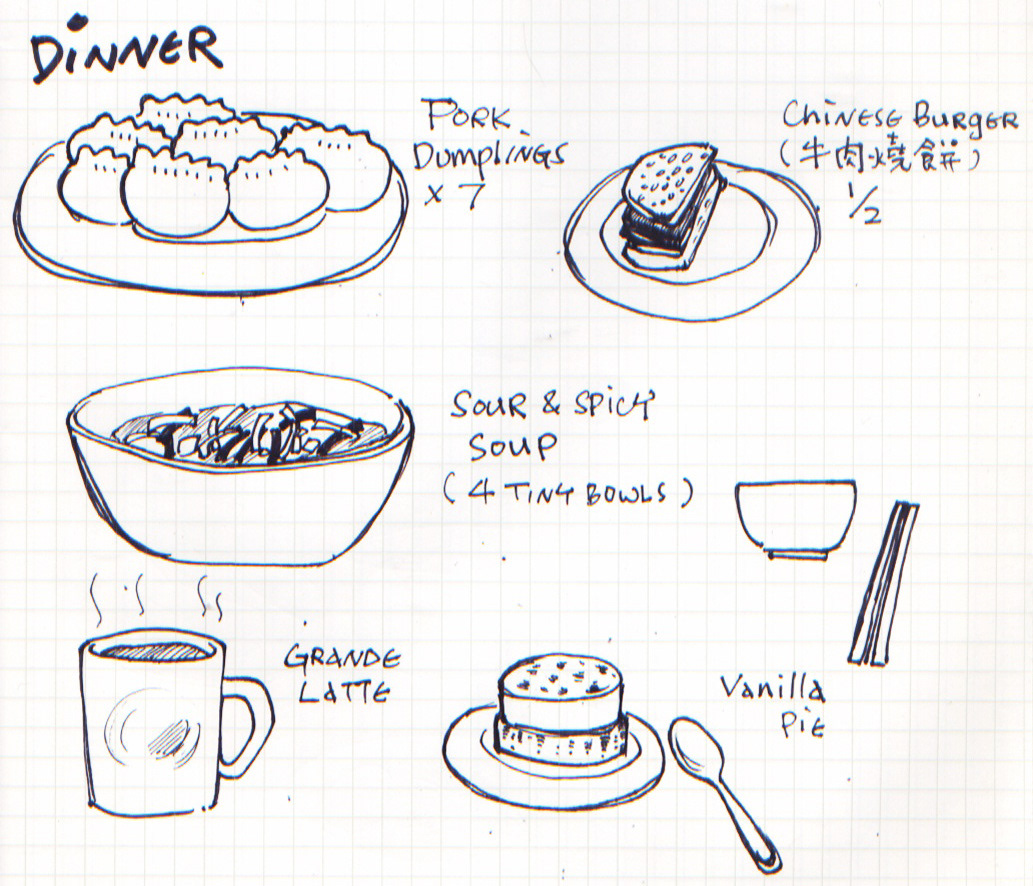 DiNNER
PORK
DumpliNGS
x 7
ChiNESE BURGER
(牛肉燒餅)
1/2
SOUR & SPICY
SOUP
(4 TINY BOWLS)
GRANDE
LATTE
Vanilla
PiE